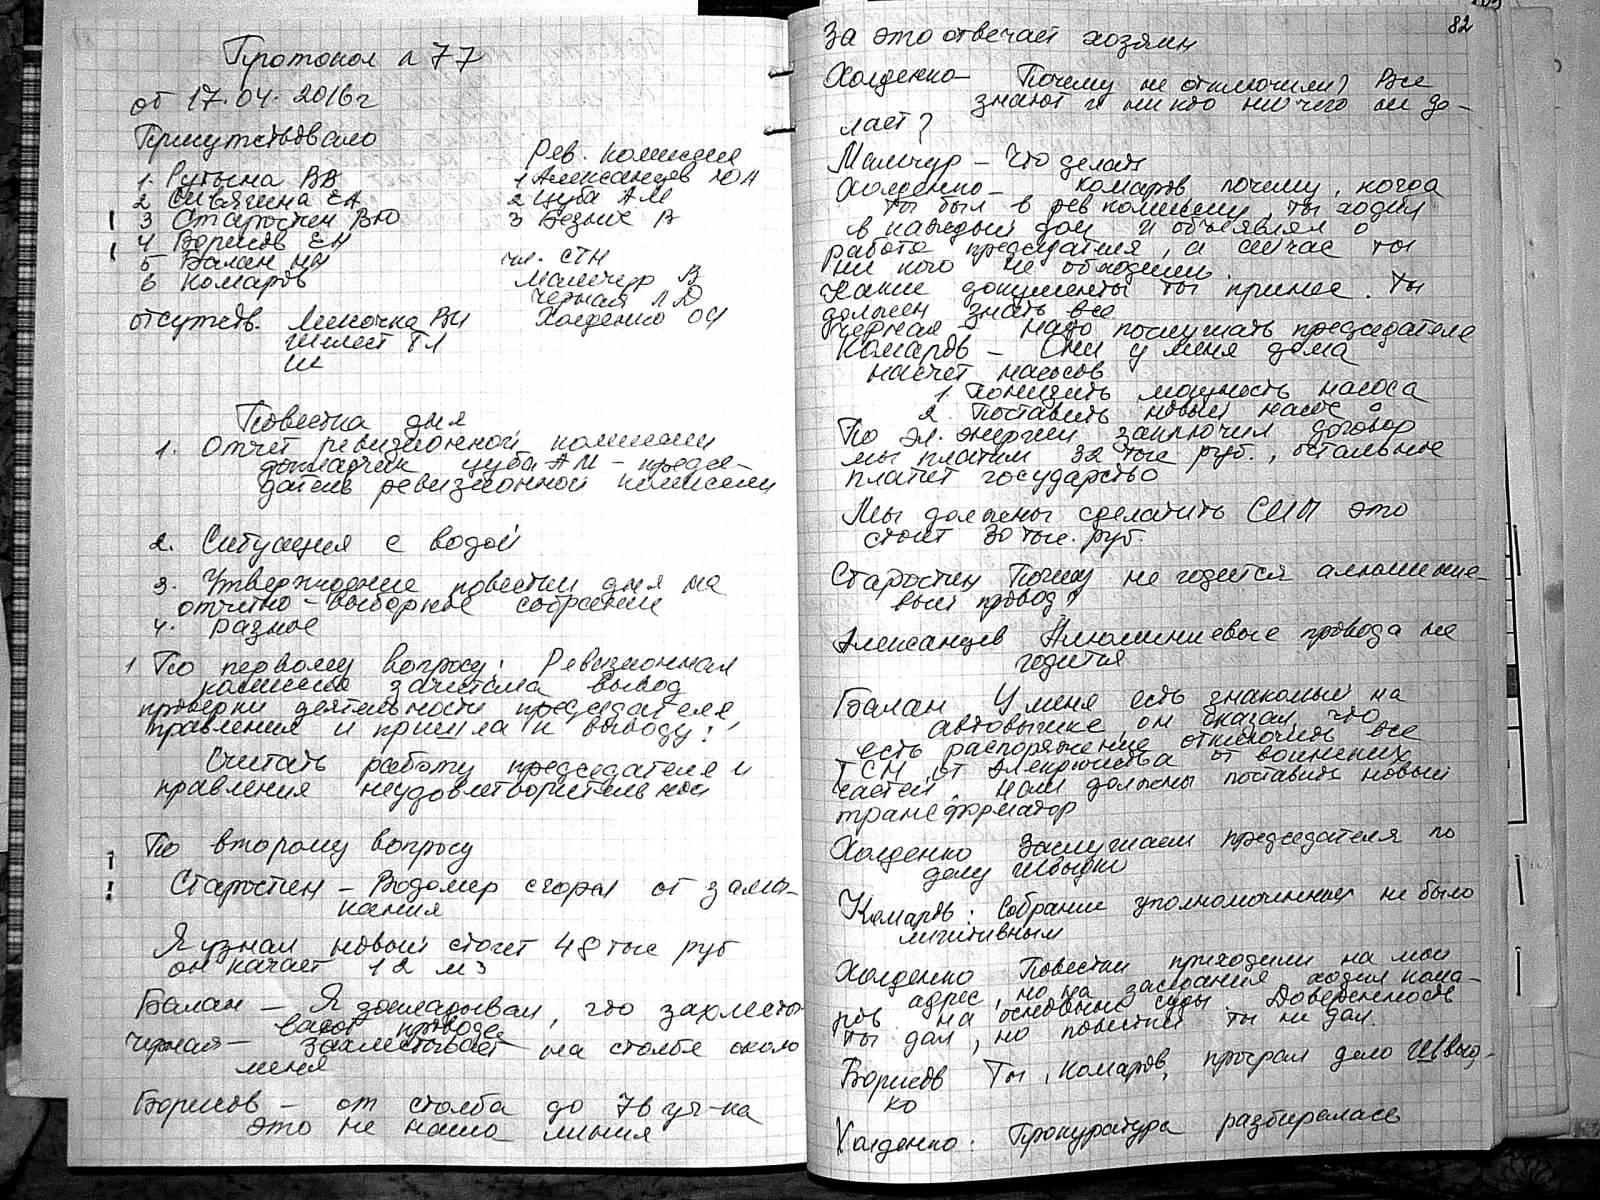 Протокол № 77
от 17.04.2016г
Присутствовало
1. Рутына ВВ
2 Сивягина ЕА
3 Старостин ВЮ
4 Борисов ЕН
5 Балан НИ
6 Комаров
отсутств. Линочка ВИ
Шилест ГЛ
Рев. комиссия
1 Алексанцев ЮН
2 Цуба АМ
3 Безние В
чл. СТН
Мальчур В
Черная ЛД
Холденко ОЧ
Повестка дня
1. Отчет ревизионной комиссии
докладчик Цуба АМ - предсе-
датель ревизионной комиссии
2. Ситуация с водой
3. Утверждение повестки дня на
отчетно-выборное собрание
4. разное
1 По первому вопросу: Ревизионная
комиссия зачитала вывод
проверки деятельности председателя,
правления и пришла к выводу:
Считать работу председателя и
правления неудовлетворительной
По второму вопросу
Старостин - Водомер сгорел от замы-
кания
Я узнал новый стоит 48 тыс руб
он качает 12 м3
Балан - Я докладывал, что захлесты
вают провода
Черная - захлестывает на столбе около
меня
Борисов - от столба до 76 уч-ка
это не наша линия
82
За это отвечает хозяин
Холденко - Почему не отключили? Все
знают и никто ничего не де-
лает?
Мальчур - Что делать
Холденко - Комаров почему, когда
ты был в рев комиссии, ты ходил
в каждый дом и объявлял о
работе председателя, а сейчас ты
ни кого не обходишь.
Какие документы ты принес. Ты
должен знать все
Черная - надо послушать председателя
Комаров - Они у меня дома
насчет насосов
1 Понизить мощность насоса
2. Поставить новый насос
По эл. энергии заключил договор
мы платим 32 тыс руб., остальное
платит государство
Мы должны сделатить СИП это
стоит 30 тыс. руб.
Старостин Почему не годится алюминие-
вый провод?
Алексанцев Алюминиевые провода не
годится
Балан У меня есть знакомый на
автовышке, он сказал, что
есть распоряжение отключить все
ТСН от электричества от воинских
частей, нам должны поставить новый
трансформатор
Холденко Заслушаем председателя по
делу Швыдко
Комаров: Собрание уполномоченных не было
лигитивным
Холденко Повестки приходили на мой
адрес, но на заседания ходил Кома-
ров на основные суды. Доверенность
ты дал, но повестки ты не дал.
Борисов Ты, Комаров, проиграл дело Швыд-
ко
Холденко: Прокуратура разбиралась